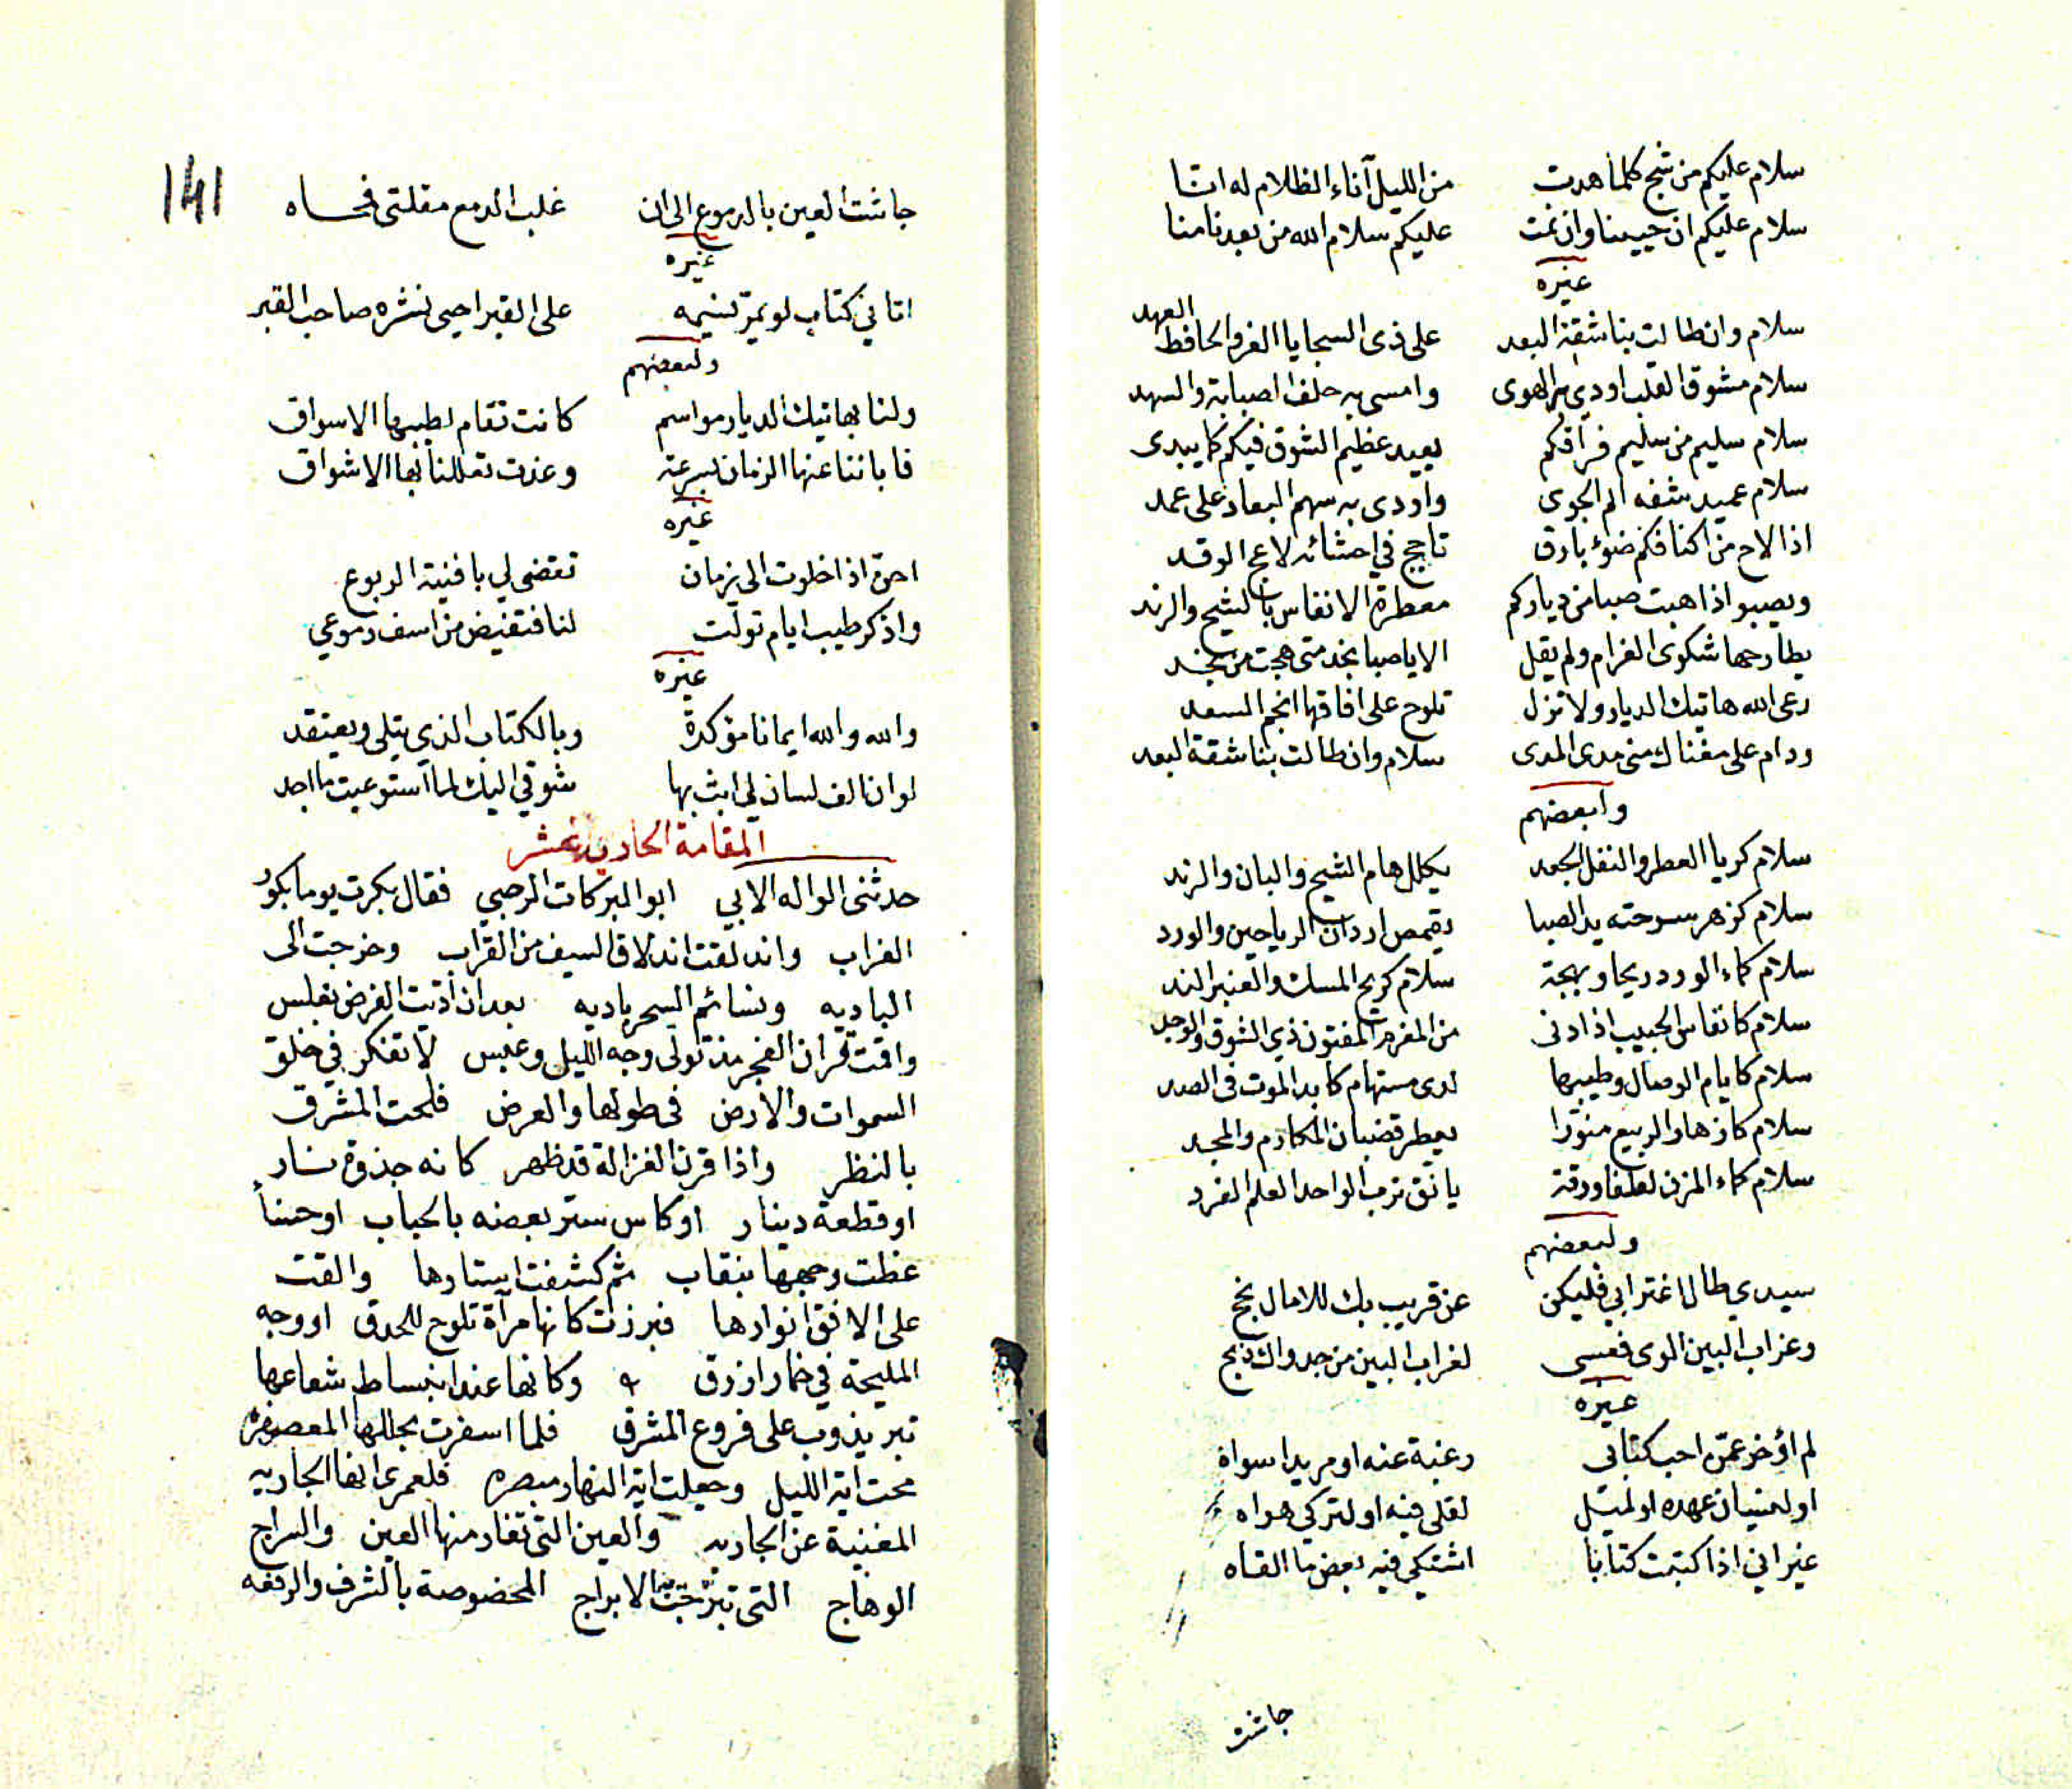 سلام عليكم من شج كلما هدت من الليل آناء الظلام له انا
سلام عليكم ان حيينا وان نمت عليكم سلام الله من بعدنا منا
غيره
سلام وان طالت بنا شقة البعد على ذى السجايا الغر والحافظ العهد
سلام مشوق القلب اودى به الهوى وامسى به حلف الصبابة والسهد
سلام سليم من سليم فراقكم يعيد عظيم الشوق فيكم كما يبدى
سلام عميد شفه الم الجوى واودى به سهم البعاد على عمد
اذا لاح من اكنافكم ضوء بارق تاجج في احشائه لاعج الوقد
ويصبو اذا هبت صبا من دياركم معطرة الانفاس بالشيح والرند
يطارحها شكوى الغرام ولم يقل الا يا صبا نجد متى هجت من نجد
رعى الله هاتيك الديار ولا تزل تلوح على افاقها انجم السعد
ودام على مغناك منى مدى المدى سلام وان طالت بنا شقة البعد
ولبعضهم
سلام كريا العطر والنفل الجعد يكلل هام الشيح والبان والرند
سلام كزهر سرحته يد الصبا يقمص اردان الرياحين والورد
سلام كماء الورد ريحا وبهجة سلام كريح المسك والعنبر الند
سلام كانفاس الحبيب اذا دنى من المغرم المفتون ذي الشوق والوجد
سلام كايام الوصال وطيبها لدى مستهام كابد الموت فى الصد
سلام كازهار الربيع منورا يعطر قضبان المكارم والمجد
سلام كماء المزن لطفا ورقة يانق ترب الواحد العلم الفرد
ولبعضهم
سيدي طال اغترابي فليكن عن قريب بك للامال نجح
وغراب البين الوى فعسى لغراب البين من جدواك ذبح
غيره
لم اؤخر عمن احب كتابى رغبة عنه او مريدا سواه
او لنسيان عهده او لميل لقلى فيه او لتركي هواه
غير اني اذا كتبت كتابا اشتكي فيه بعض ما القاه
جاشت
141
جاشت العين بالدموع الى ان غلب الدمع مقلتى فمحاه
غيره
اتاني كتاب لو يمر نسيمه على القبر احيى نشره صاحب القبر
ولبعضهم
ولنا بهاتيك الديار مواسم كانت تقام لطيبها الاسواق
فاباننا عنها الزمان بسرعة وغدت تعللنا بها الاشواق
غيره
احن اذا خلوت الى زمان تقضى لي بافنية الربوع
واذكر طيب ايام تولت لنا فتفيض من اسف دموعي
غيره
والله والله ايمانا مؤكدة وبالكتاب الذي يتلى ويعتقد
لو ان الف لسان لي ابث بها شوقي اليك لما استوعبت ما اجد
المقامة الحادية عشر
حدثنى الواله الابي ابو البركات الرحبي فقال بكرت يوما بكور
الغراب واندلقت اندلاق السيف من القراب وخرجت الى
الباديه ونسائم السحر باديه بعد ان اديت الفرض بغلس
واقمت قران الفجر مذ تولى وجه الليل وعبس لاتفكر في خلق
السموات والارض في طولها والعرض فلمحت المشرق
بالنظر واذا قرن الغزالة قد ظهر كانه جذوة نار
او قطعة دينار او كاس ستر بعضه بالحباب او حسنا
غطت وجهها بنقاب ثم كشفت استارها والقت
على الافق انوارها فبرزت كانها مرآة تلوح للحدق او وجه
المليحة في خمار ازرق وكانها عند انبساط شعاعها
تبر يذوب على فروع المشرق فلما اسفرت بحللها المعصفره
محت اية الليل وجعلت اية النهار مبصره فلعمرى انها الجاريه
المغنية عن الجاريه والعين التى تغار منها العين والسراج
الوهاج التى تبرجت الابراج المخصوصة بالشرف والرفعه